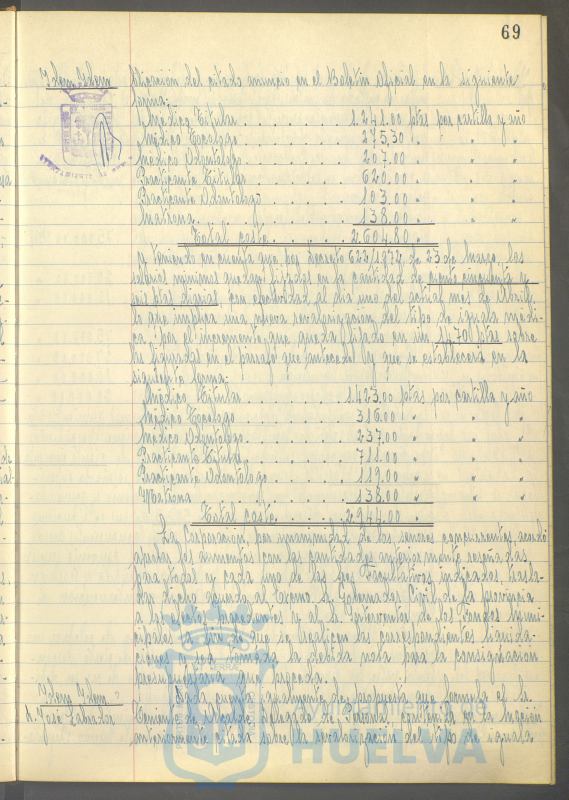 69
Idem Idem
blicación del citado anuncio en el Boletín Oficial en la siguiente
forma:
Médico Titular . . . . . . 1.241,00 ptas por cartilla y año
Médico Tocólogo . . . . . . 275,30 " " "
Médico Odontólogo . . . . . . 207,00 " " "
Practicante Titular . . . . . . 620,00 " " "
Practicante Odontólogo . . . . . . 103,00 " " "
Matrona . . . . . . 138,00 " " "
Total costo . . . . . . 2.604,80 "
Y teniendo en cuenta que por Decreto 622/1972 de 23 de Marzo, los
salarios mínimos quedan fijados en la cantidad de ciento cincuenta y
seis ptas diarias, con efectividad al día uno del actual mes de Abril,
lo que implica una nueva revalorización del tipo de iguala médi-
ca, por el incremento que queda fijado en un 14,70 ptas sobre
las figuradas en el párrafo que antecede y que se establecerá en la
siguiente forma:
Médico Titular . . . . . . 1.423,00 ptas por cartilla y año
Médico Tocólogo . . . . . . 316,00 " " "
Médico Odontólogo . . . . . . 237,00 " " "
Practicante Titular . . . . . . 711,00 " " "
Practicante Odontólogo . . . . . . 119,00 " " "
Matrona . . . . . . 138,00 " " "
Total costo . . . . . . 2.944,00 "
La Corporación, por unanimidad de los señores concurrentes, acordó
aprobar los aumentos con las cantidades anteriormente reseñadas
para todos y cada uno de los Sres Facultativos indicados, trasla-
dar dicho acuerdo al Excmo Sr Gobernador Civil de la provincia
a los efectos procedentes y al Sr Interventor de los Fondos Muni-
cipales a fin de que se realicen las correspondientes liquida-
ciones y sea tomada la debida nota para la consignación
presupuestaria que proceda.
Idem Idem
D. José Labrador
Dada cuenta igualmente de propuesta que formula el Sr
Teniente de Alcalde Delegado de Personal, contenida en la Moción
anteriormente citada sobre la revalorización del tipo de iguala
Ayuntamiento de
HUELVA